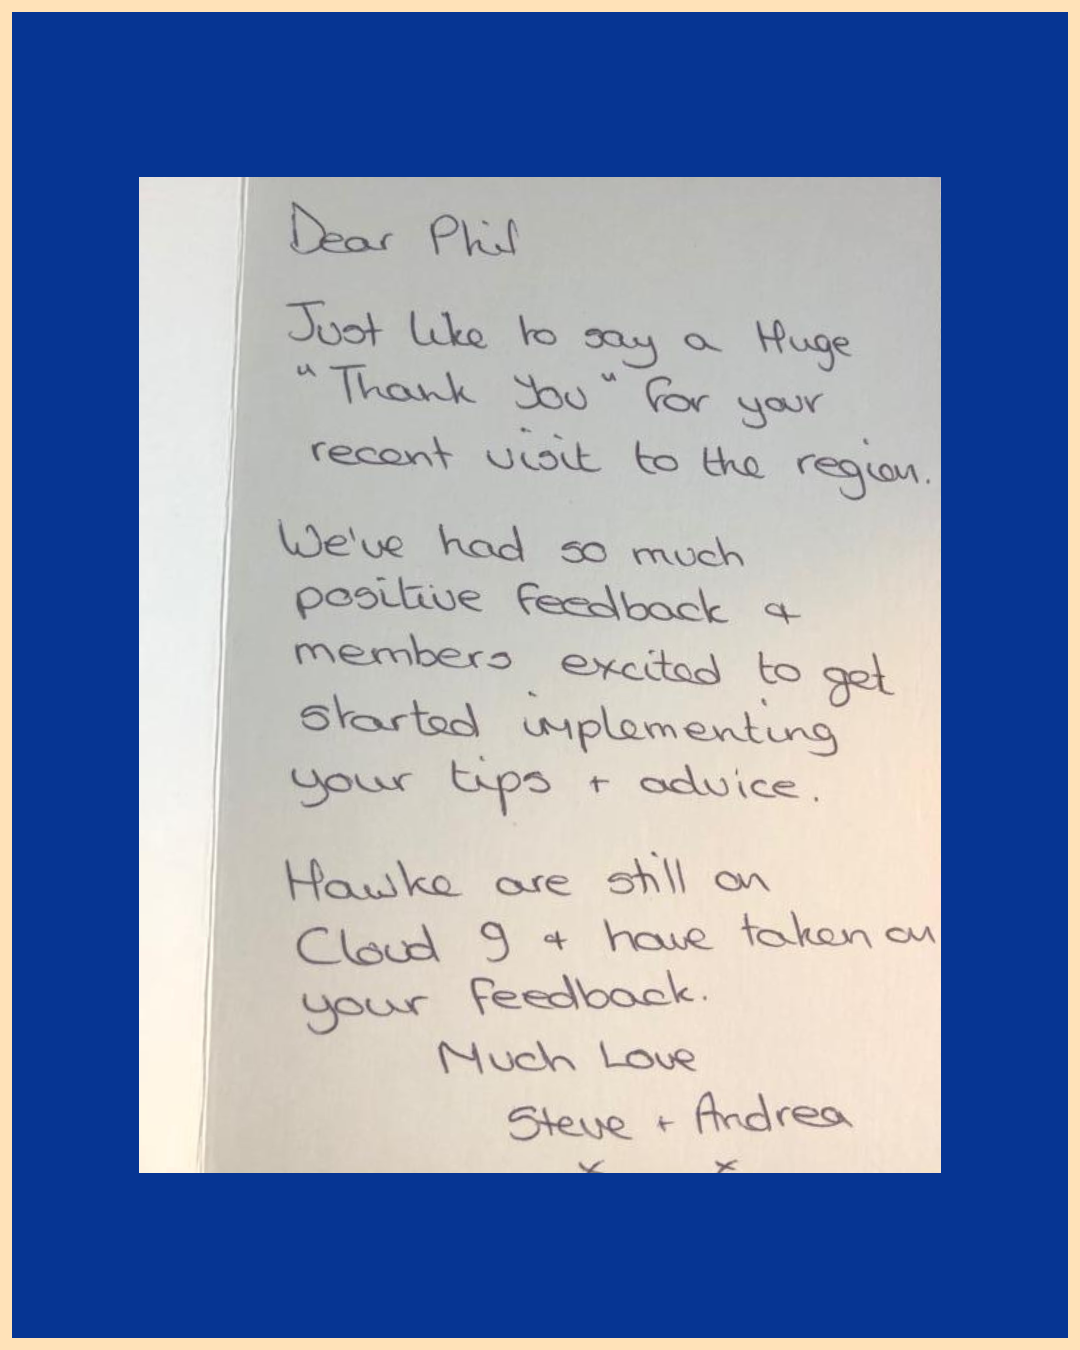 Dear Phil
Just like to say a Huge
"Thank You" for your
recent visit to the region.
We've had so much
positive feedback &
members excited to get
started implementing
your tips + advice.
Hawke are still on
Cloud 9 & have taken on
your feedback.
Much Love
Steve + Andrea
x x